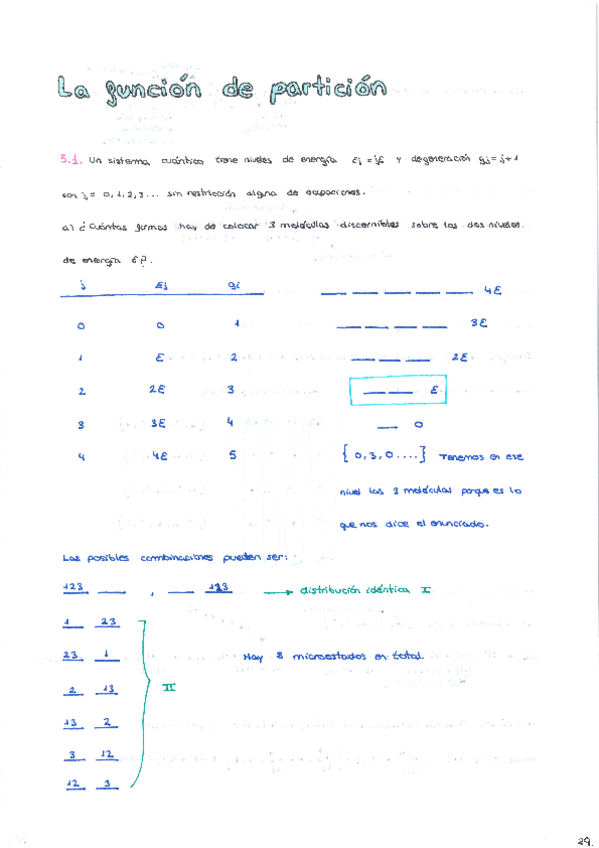 La función de partición
5.1. Un sistema cuántico tiene niveles de energía Ej = jE y degeneración gj = j+1
con j = 0, 1, 2, 3... sin restricción alguna de ocupaciones.
a) ¿Cuántas formas hay de colocar 3 moléculas discernibles sobre los dos niveles
de energía E?.
j Ej gj
0 0 1
1 E 2
2 2E 3
3 3E 4
4 4E 5
4E
3E
2E
E
0
{0, 3, 0....} Tenemos en ese
nivel las 3 moléculas porque es lo
que nos dice el enunciado.
Las posibles combinaciones pueden ser:
123 , 123 → distribución idéntica I
1 23
23 1
2 13
13 2
3 12
12 3
II
Hay 8 microestados en total.
29.